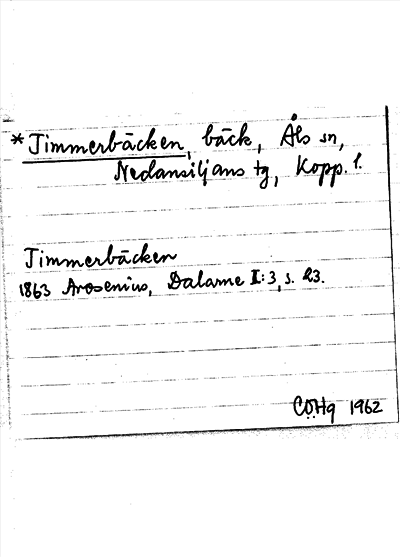 *Timmerbäcken, bäck, Åls sn,
Nedansiljans tg, Kopp. l.
Timmerbäcken
1863 Arosenius, Dalarne II:3, s. 23.
COHg 1962